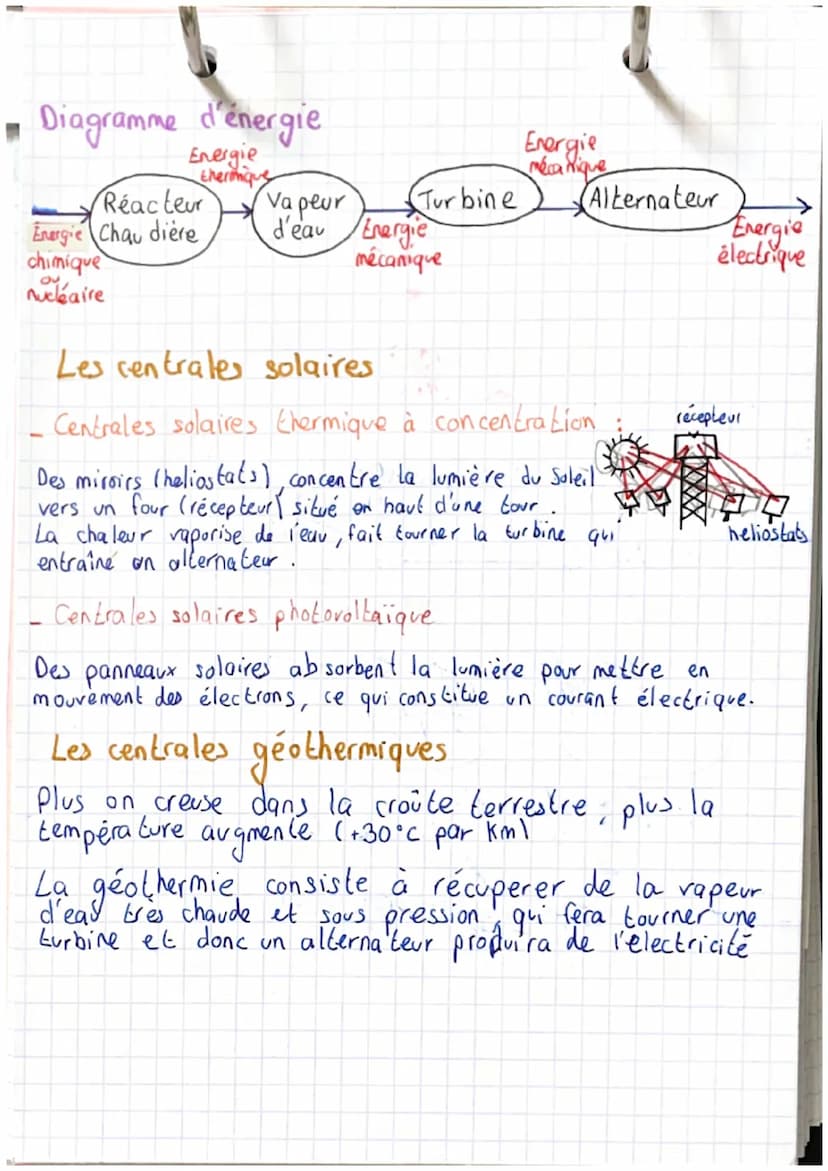 Diagramme d'énergie
Energie
thermique
Energie
mécanique
Réacteur
Chaudière
Vapeur
d'eau
Turbine
Alternateur
Énergie
chimique
ou
nucléaire
Énergie
mécanique
Énergie
électrique
Les centrales solaires
- Centrales solaires thermique à concentration :
récepteur
Des miroirs (heliostats), concentre la lumière du Soleil
vers un four (récepteur( situé en haut d'une tour.
La chaleur vaporise de l'eau, fait tourner la turbine qui
entraîne un alternateur.
heliostats
- Centrales solaires photovoltaïque
Des panneaux solaires absorbent la lumière pour mettre en
mouvement des électrons, ce qui constitue un courant électrique.
Les centrales géothermiques
Plus on creuse dans la croûte terrestre, plus la
température augmente (+30°C par Km)
La géothermie consiste à récuperer de la vapeur
d'eau très chaude et sous pression, qui fera tourner une
turbine et donc un alternateur produira de l'électricité